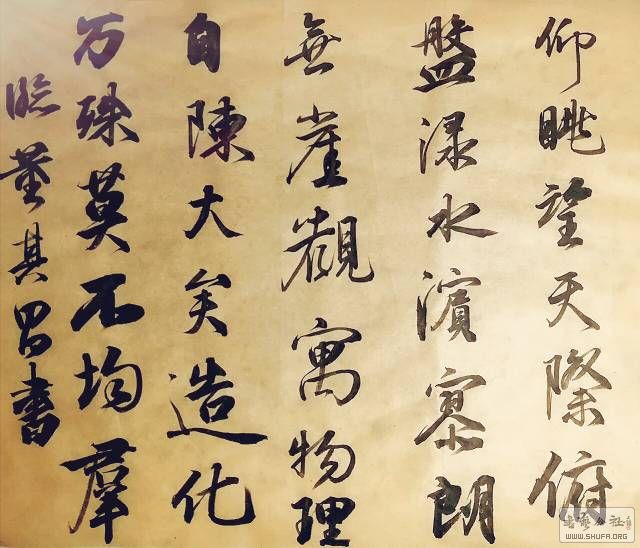 仰眺望天際俯
盤渌水濱寥朗
無崖觀寓物理
自陳大矣造化
万殊莫不均羣
臨董其昌書
WWW.SHUFA.ORG